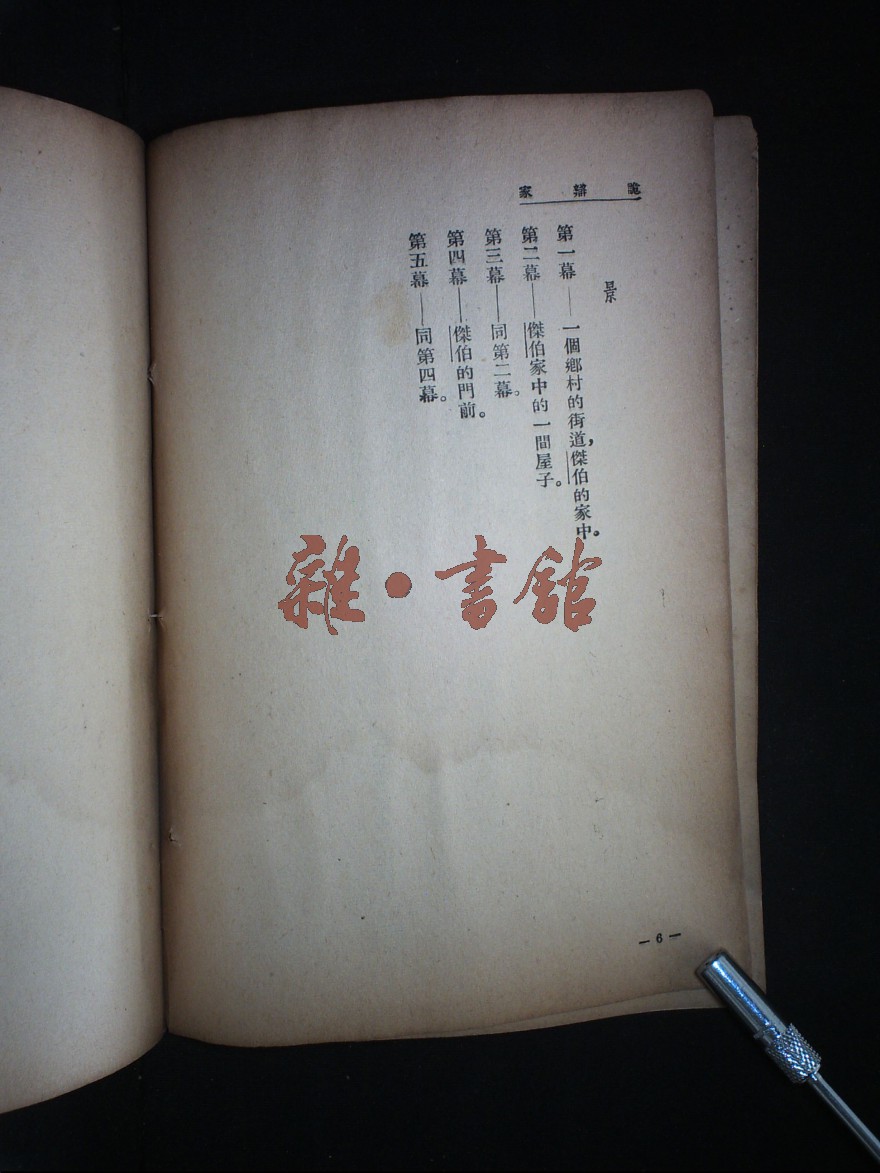 詭辯家
景
第一幕——一個鄉村的街道，傑伯的家中。
第二幕——傑伯家中的一間屋子。
第三幕——同第二幕。
第四幕——傑伯的門前。
第五幕——同第四幕。
雜·書館
— 6 —